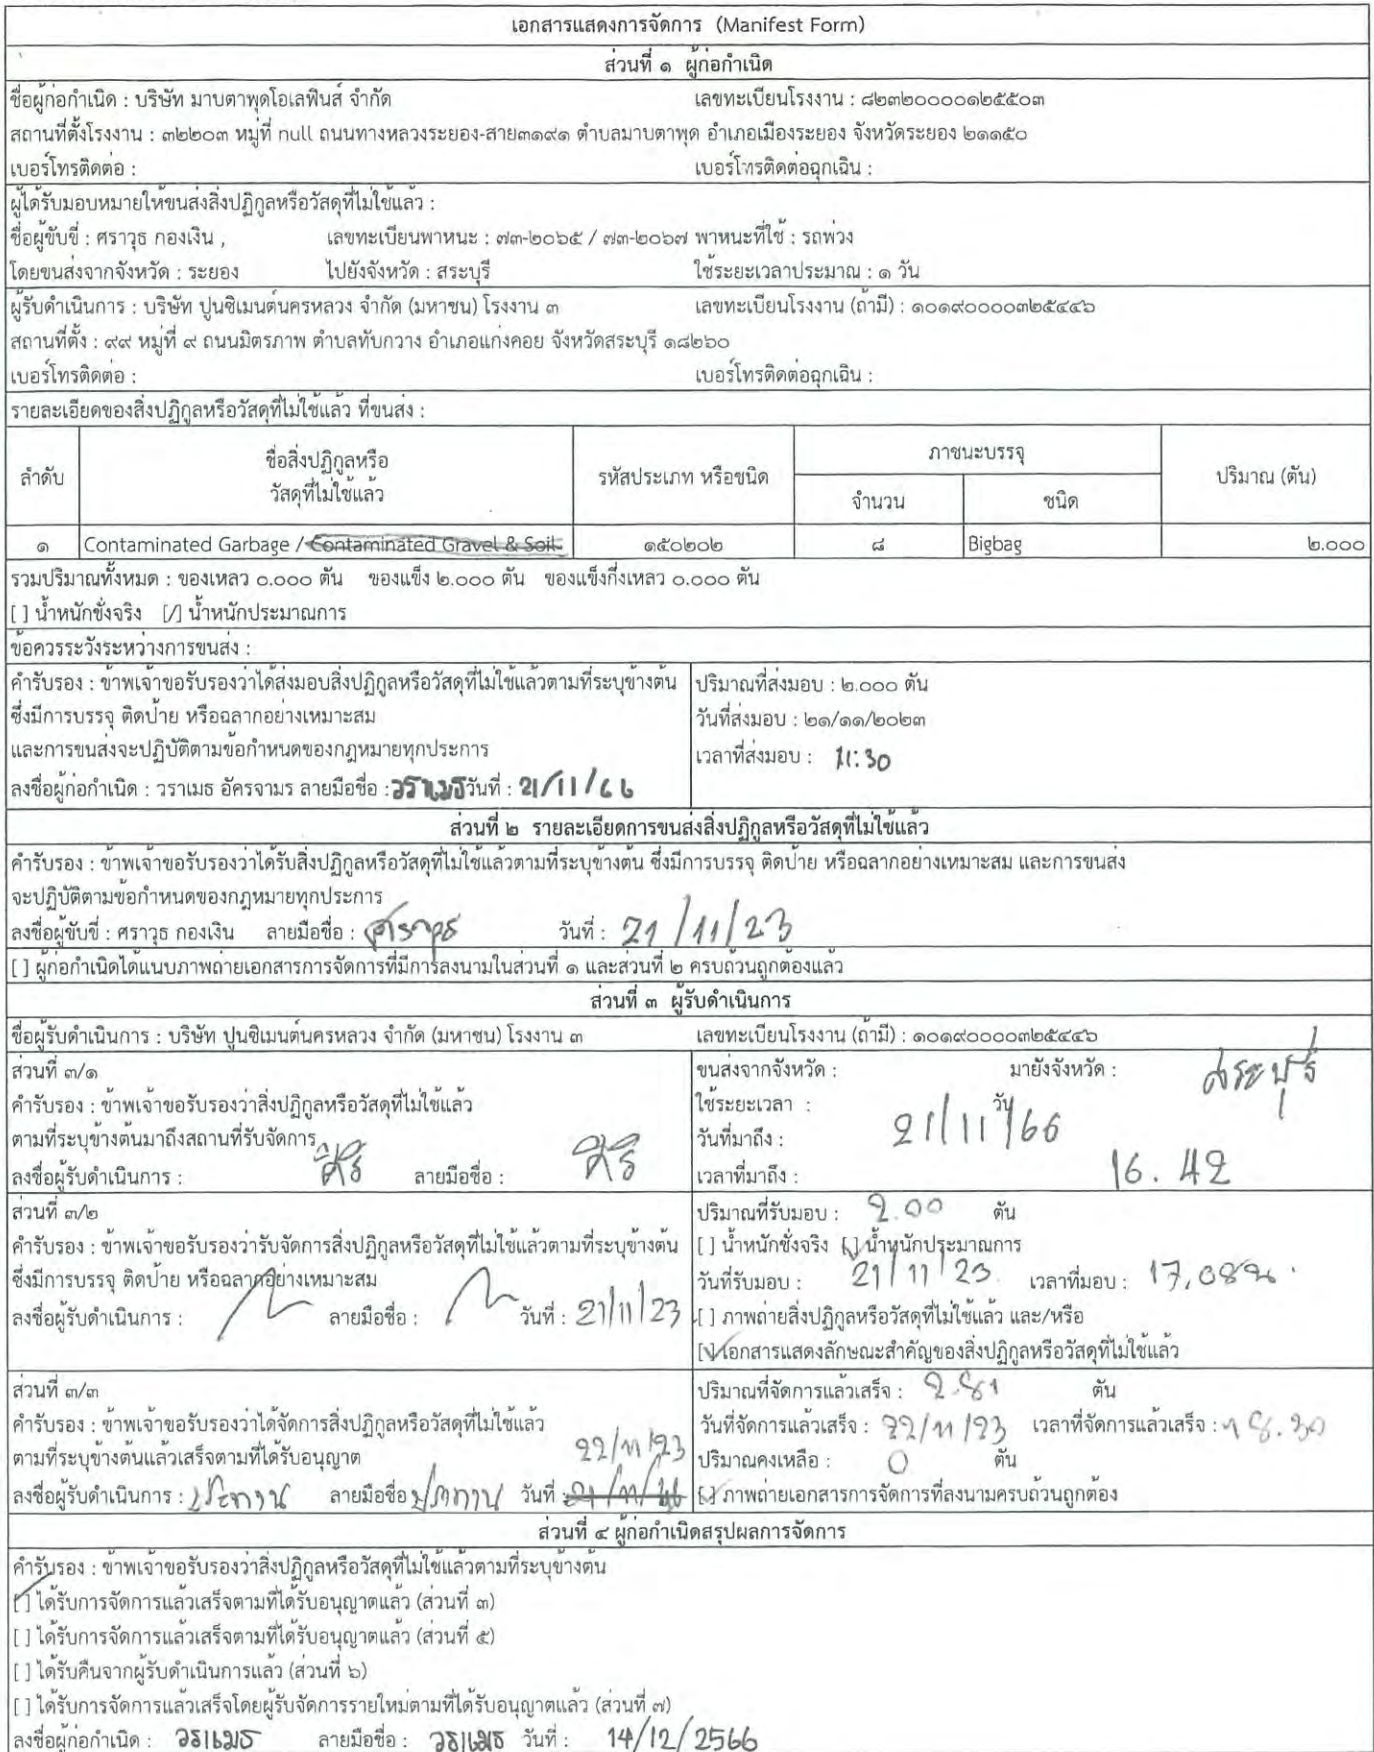 เอกสารแสดงการจัดการ (Manifest Form)
ส่วนที่ ๑ ผู้ก่อกำเนิด
ชื่อผู้ก่อกำเนิด : บริษัท มาบตาพุดโอเลฟินส์ จำกัด เลขทะเบียนโรงงาน : ๘๒๓๒๐๐๐๐๑๒๕๕๐๓
สถานที่ตั้งโรงงาน : ๓๒๒๐๓ หมู่ที่ null ถนนทางหลวงระยอง-สาย๓๑๙๑ ตำบลมาบตาพุด อำเภอเมืองระยอง จังหวัดระยอง ๒๑๑๕๐
เบอร์โทรติดต่อ : เบอร์โทรติดต่อฉุกเฉิน :
ผู้ได้รับมอบหมายให้ขนส่งสิ่งปฏิกูลหรือวัสดุที่ไม่ใช้แล้ว :
ชื่อผู้ขับขี่ : ศราวุธ กองเงิน , เลขทะเบียนพาหนะ : ๗๓-๒๐๖๕ / ๗๓-๒๐๖๗ พาหนะที่ใช้ : รถพ่วง
โดยขนส่งจากจังหวัด : ระยอง ไปยังจังหวัด : สระบุรี ใช้ระยะเวลาประมาณ : ๑ วัน
ผู้รับดำเนินการ : บริษัท ปูนซิเมนต์นครหลวง จำกัด (มหาชน) โรงงาน ๓ เลขทะเบียนโรงงาน (ถ้ามี) : ๑๐๑๙๐๐๐๐๓๒๕๔๔๖
สถานที่ตั้ง : ๙๙ หมู่ที่ ๙ ถนนมิตรภาพ ตำบลทับกวาง อำเภอแก่งคอย จังหวัดสระบุรี ๑๘๒๖๐
เบอร์โทรติดต่อ : เบอร์โทรติดต่อฉุกเฉิน :
รายละเอียดของสิ่งปฏิกูลหรือวัสดุที่ไม่ใช้แล้ว ที่ขนส่ง :
ลำดับ ชื่อสิ่งปฏิกูลหรือ วัสดุที่ไม่ใช้แล้ว รหัสประเภท หรือชนิด ภาชนะบรรจุ ปริมาณ (ตัน)
จำนวน ชนิด
๑ Contaminated Garbage / Contaminated Gravel & Soil ๑๕๐๒๐๒ ๘ Bigbag ๒.๐๐๐
รวมปริมาณทั้งหมด : ของเหลว ๐.๐๐๐ ตัน ของแข็ง ๒.๐๐๐ ตัน ของแข็งกึ่งเหลว ๐.๐๐๐ ตัน
[ ] น้ำหนักชั่งจริง [/] น้ำหนักประมาณการ
ข้อควรระวังระหว่างการขนส่ง :
คำรับรอง : ข้าพเจ้าขอรับรองว่าได้ส่งมอบสิ่งปฏิกูลหรือวัสดุที่ไม่ใช้แล้วตามที่ระบุข้างต้น ปริมาณที่ส่งมอบ : ๒.๐๐๐ ตัน
ซึ่งมีการบรรจุ ติดป้าย หรือฉลากอย่างเหมาะสม วันที่ส่งมอบ : ๒๑/๑๑/๒๐๒๓
และการขนส่งจะปฏิบัติตามข้อกำหนดของกฎหมายทุกประการ เวลาที่ส่งมอบ : 11:30
ลงชื่อผู้ก่อกำเนิด : วราเมธ อัครจามร ลายมือชื่อ : วราเมธ วันที่ : 21/11/66
ส่วนที่ ๒ รายละเอียดการขนส่งสิ่งปฏิกูลหรือวัสดุที่ไม่ใช้แล้ว
คำรับรอง : ข้าพเจ้าขอรับรองว่าได้รับสิ่งปฏิกูลหรือวัสดุที่ไม่ใช้แล้วตามที่ระบุข้างต้น ซึ่งมีการบรรจุ ติดป้าย หรือฉลากอย่างเหมาะสม และการขนส่ง
จะปฏิบัติตามข้อกำหนดของกฎหมายทุกประการ
ลงชื่อผู้ขับขี่ : ศราวุธ กองเงิน ลายมือชื่อ : ศราวุธ วันที่ : 21/11/23
[ ] ผู้ก่อกำเนิดได้แนบภาพถ่ายเอกสารการจัดการที่มีการลงนามในส่วนที่ ๑ และส่วนที่ ๒ ครบถ้วนถูกต้องแล้ว
ส่วนที่ ๓ ผู้รับดำเนินการ
ชื่อผู้รับดำเนินการ : บริษัท ปูนซิเมนต์นครหลวง จำกัด (มหาชน) โรงงาน ๓ เลขทะเบียนโรงงาน (ถ้ามี) : ๑๐๑๙๐๐๐๐๓๒๕๔๔๖
ส่วนที่ ๓/๑ ขนส่งจากจังหวัด : มายังจังหวัด : สระบุรี
คำรับรอง : ข้าพเจ้าขอรับรองว่าสิ่งปฏิกูลหรือวัสดุที่ไม่ใช้แล้ว ใช้ระยะเวลา : วัน
ตามที่ระบุข้างต้นมาถึงสถานที่รับจัดการ วันที่มาถึง : 21/11/66
ลงชื่อผู้รับดำเนินการ : ศิริ ลายมือชื่อ : ศิริ เวลาที่มาถึง : 16.42
ส่วนที่ ๓/๒ ปริมาณที่รับมอบ : 2.00 ตัน
คำรับรอง : ข้าพเจ้าขอรับรองว่ารับจัดการสิ่งปฏิกูลหรือวัสดุที่ไม่ใช้แล้วตามที่ระบุข้างต้น [ ] น้ำหนักชั่งจริง [/] น้ำหนักประมาณการ
ซึ่งมีการบรรจุ ติดป้าย หรือฉลากอย่างเหมาะสม วันที่รับมอบ : 21/11/23 เวลาที่มอบ : 17.08น.
ลงชื่อผู้รับดำเนินการ : ลายมือชื่อ : วันที่ : 21/11/23 [ ] ภาพถ่ายสิ่งปฏิกูลหรือวัสดุที่ไม่ใช้แล้ว และ/หรือ
[✓] เอกสารแสดงลักษณะสำคัญของสิ่งปฏิกูลหรือวัสดุที่ไม่ใช้แล้ว
ส่วนที่ ๓/๓ ปริมาณที่จัดการแล้วเสร็จ : 2.81 ตัน
คำรับรอง : ข้าพเจ้าขอรับรองว่าได้จัดการสิ่งปฏิกูลหรือวัสดุที่ไม่ใช้แล้ว วันที่จัดการแล้วเสร็จ : 22/11/23 เวลาที่จัดการแล้วเสร็จ : 18.30
ตามที่ระบุข้างต้นแล้วเสร็จตามที่ได้รับอนุญาต 22/11/23 ปริมาณคงเหลือ : 0 ตัน
ลงชื่อผู้รับดำเนินการ : ประทาน ลายมือชื่อ ประทาน วันที่ 21/11/66 [/] ภาพถ่ายเอกสารการจัดการที่ลงนามครบถ้วนถูกต้อง
ส่วนที่ ๔ ผู้ก่อกำเนิดสรุปผลการจัดการ
คำรับรอง : ข้าพเจ้าขอรับรองว่าสิ่งปฏิกูลหรือวัสดุที่ไม่ใช้แล้วตามที่ระบุข้างต้น
[/] ได้รับการจัดการแล้วเสร็จตามที่ได้รับอนุญาตแล้ว (ส่วนที่ ๓)
[ ] ได้รับการจัดการแล้วเสร็จตามที่ได้รับอนุญาตแล้ว (ส่วนที่ ๕)
[ ] ได้รับคืนจากผู้รับดำเนินการแล้ว (ส่วนที่ ๖)
[ ] ได้รับการจัดการแล้วเสร็จโดยผู้รับจัดการรายใหม่ตามที่ได้รับอนุญาตแล้ว (ส่วนที่ ๗)
ลงชื่อผู้ก่อกำเนิด : วราเมธ ลายมือชื่อ : วราเมธ วันที่ : 14/12/2566